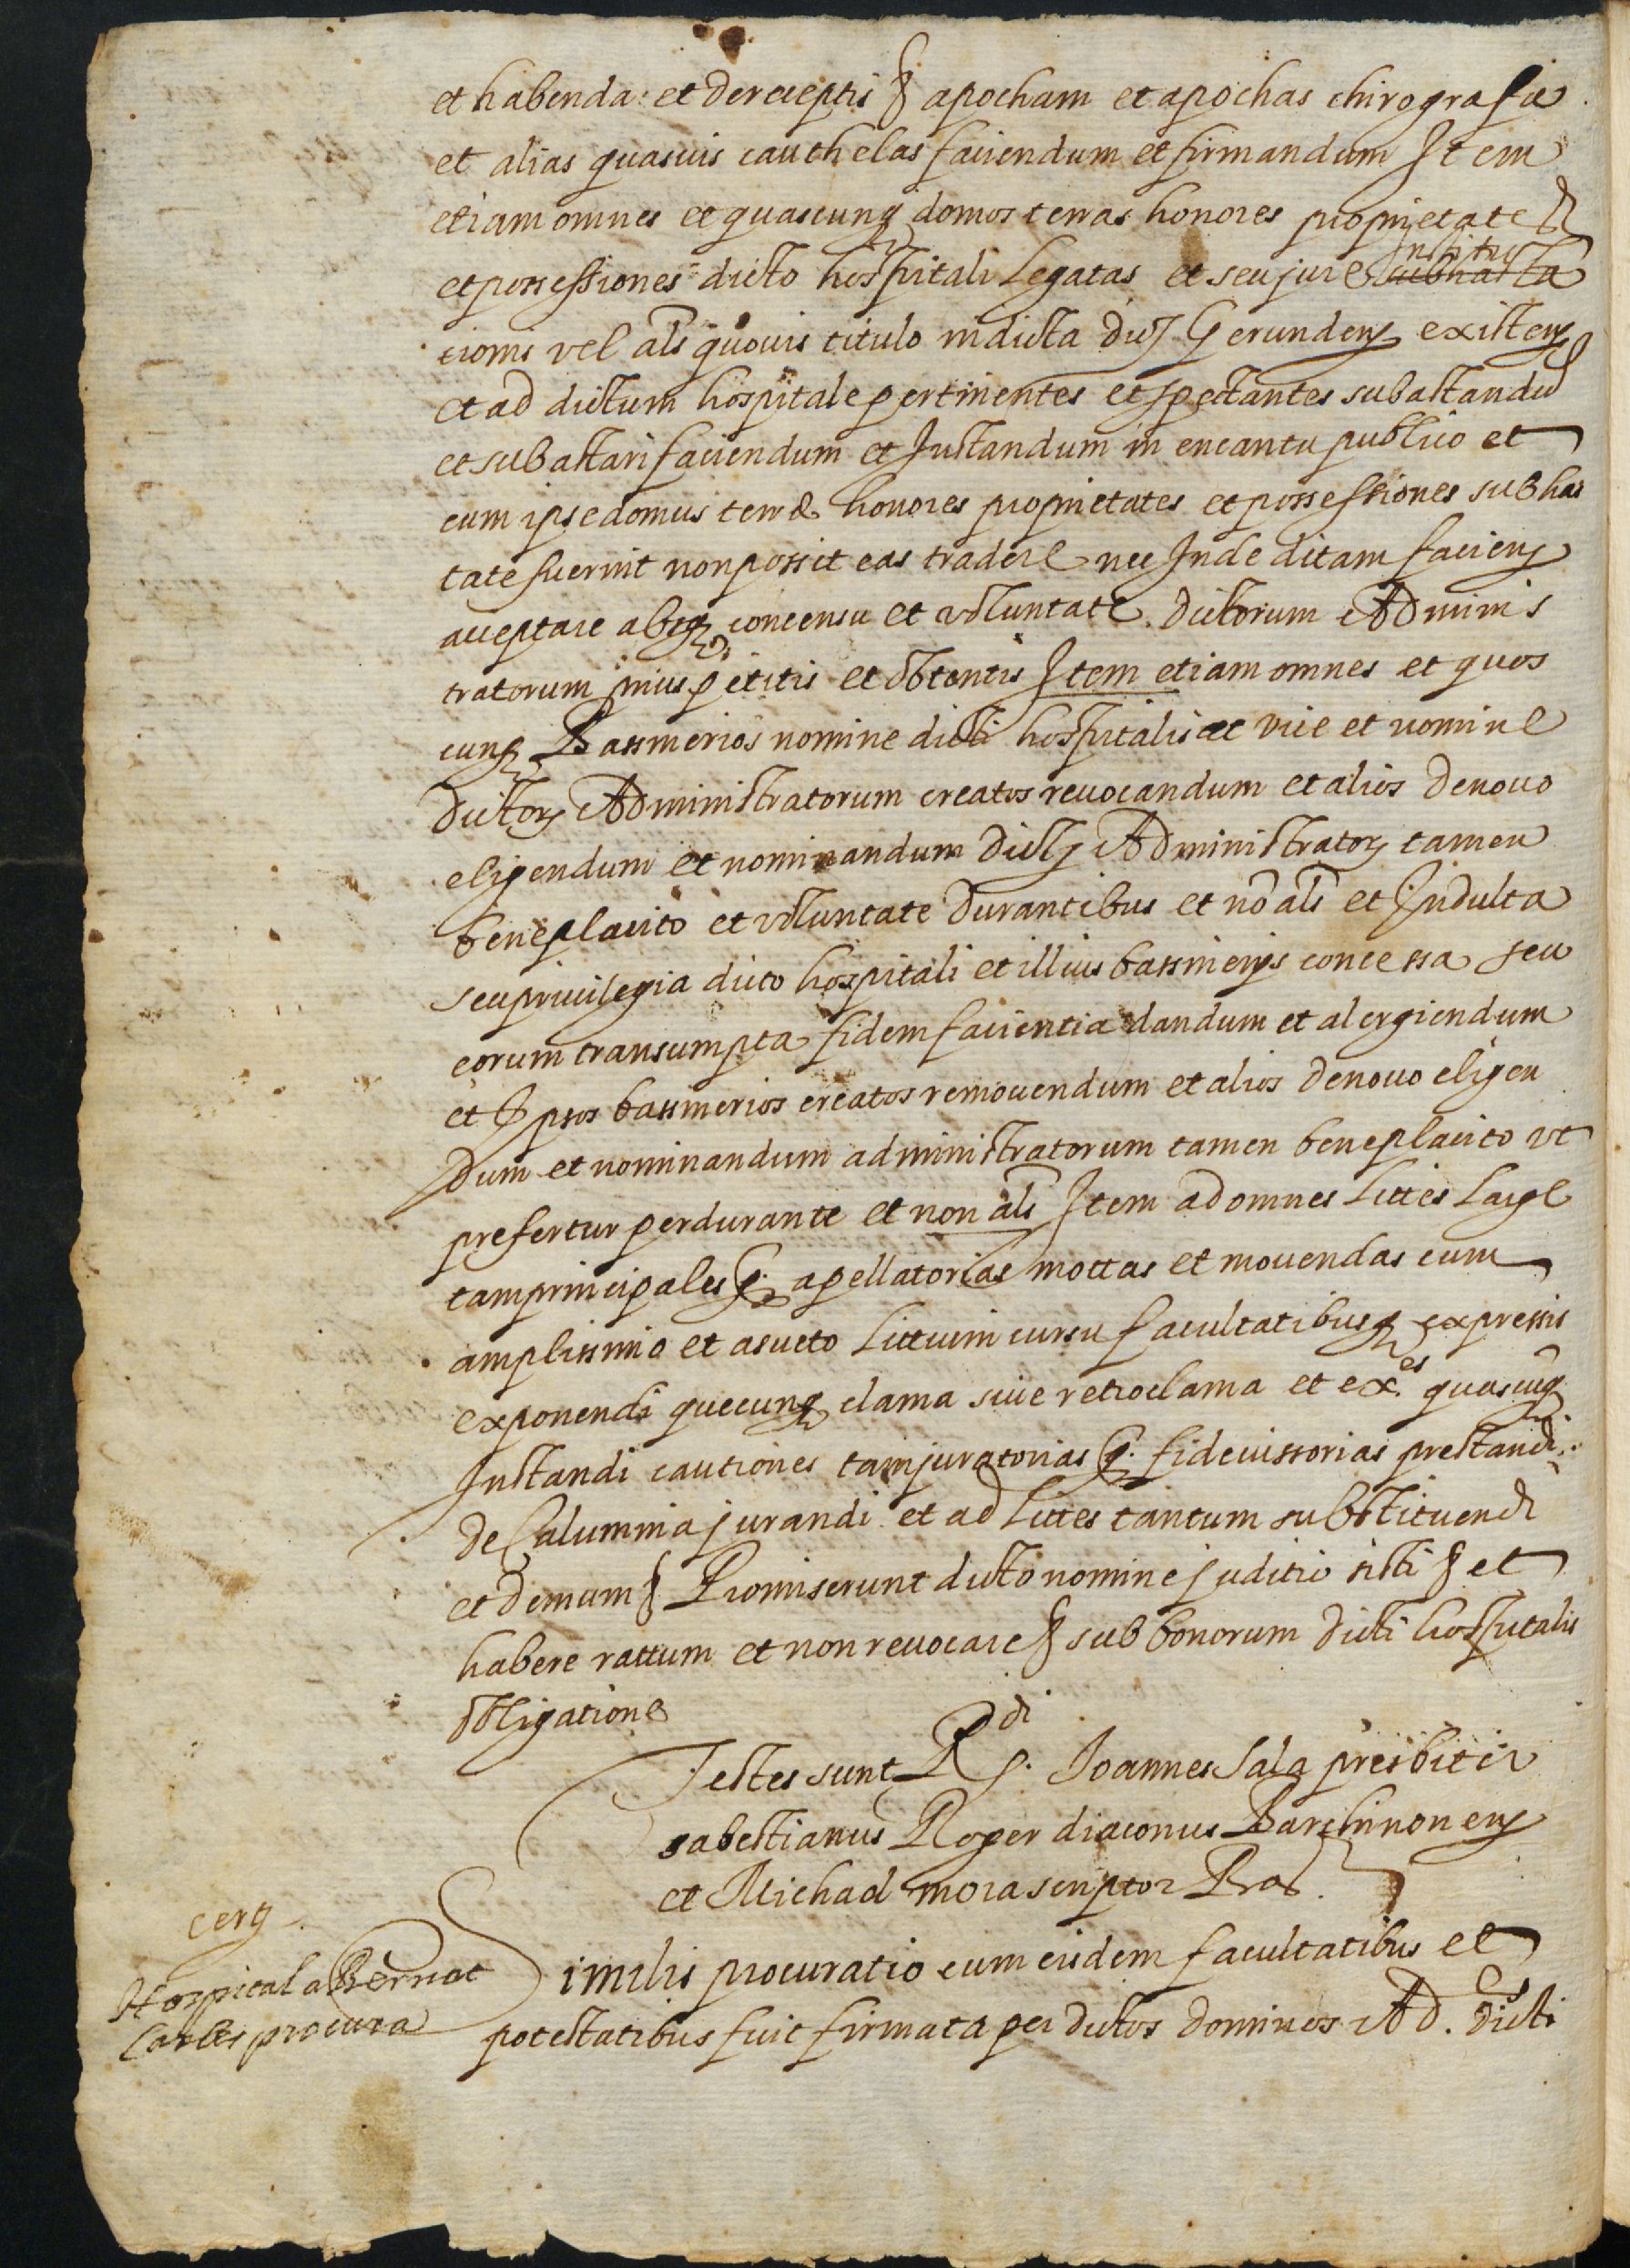 et habenda: et de receptis § apocham et apochas chirografa
et alias quasuis cauthelas faciendum et firmandum Item
etiam omnes et quascunq domos terras honores proprietates
et possessiones dicto hospitali Legatas et seu jure institu
subhasta
tionis vel als quouis titulo in dicta dioc Gerunden existen
et ad dictum hospitale pertinentes et spectantes subastandu
et subastari faciendum et Instandum in encantu publico et
cum ipse domus terre honores proprietates et possessiones subhas
tate fuerint non possit eas tradere nec Inde ditam facien
acceptare absq concensu et voluntate dictorum Adminis
tratorum prius petitis et obtentis Item etiam omnes et quos
cunq Bassinerios nomine dicti hospitalis ac vice et nomine
dictor Administratorum creatos reuocandum et alios denouo
eligendum et nominandum dict Administrator tamen
beneplacito et voluntate durantibus et no als et Indulta
seu priuilegia dicto hospitali et illius bassinerijs concessa seu
eorum transumpta fidem facientia dandum et alergiendum
et Ipsos bassinerios creatos remouendum et alios denouo eligen
dum et nominandum administratorum tamen beneplacito vt
prefertur perdurante et non als Item ad omnes Littes Large
tam principales q. apellatorias mottas et mouendas cum
amplissimo et asueto Littium cursu facultatibusq expressis
exponendi quecunq clama siue retroclama et ex.es quascuq
Instandi cautiones tam juratorias q. fideiussorias prestandi
de Calumnia jurandi et ad Littes tantum substituendi
et demum § Promiserunt dicto nomine juditio sisti § et
habere rattum et non reuocare § sub bonorum dicti hospitalis
obligatione
Testes sunt Rdi p. Joannes Sala presbiter
sabestianus Roger diaconus Barchinonen
et Michael mora scriptor Bar
cerq
Hospital a Bernat
Carles procura
Similis procuratio cum eisdem facultatibus et
potestatibus fuit firmata per dictos dominos Ad.es dicti